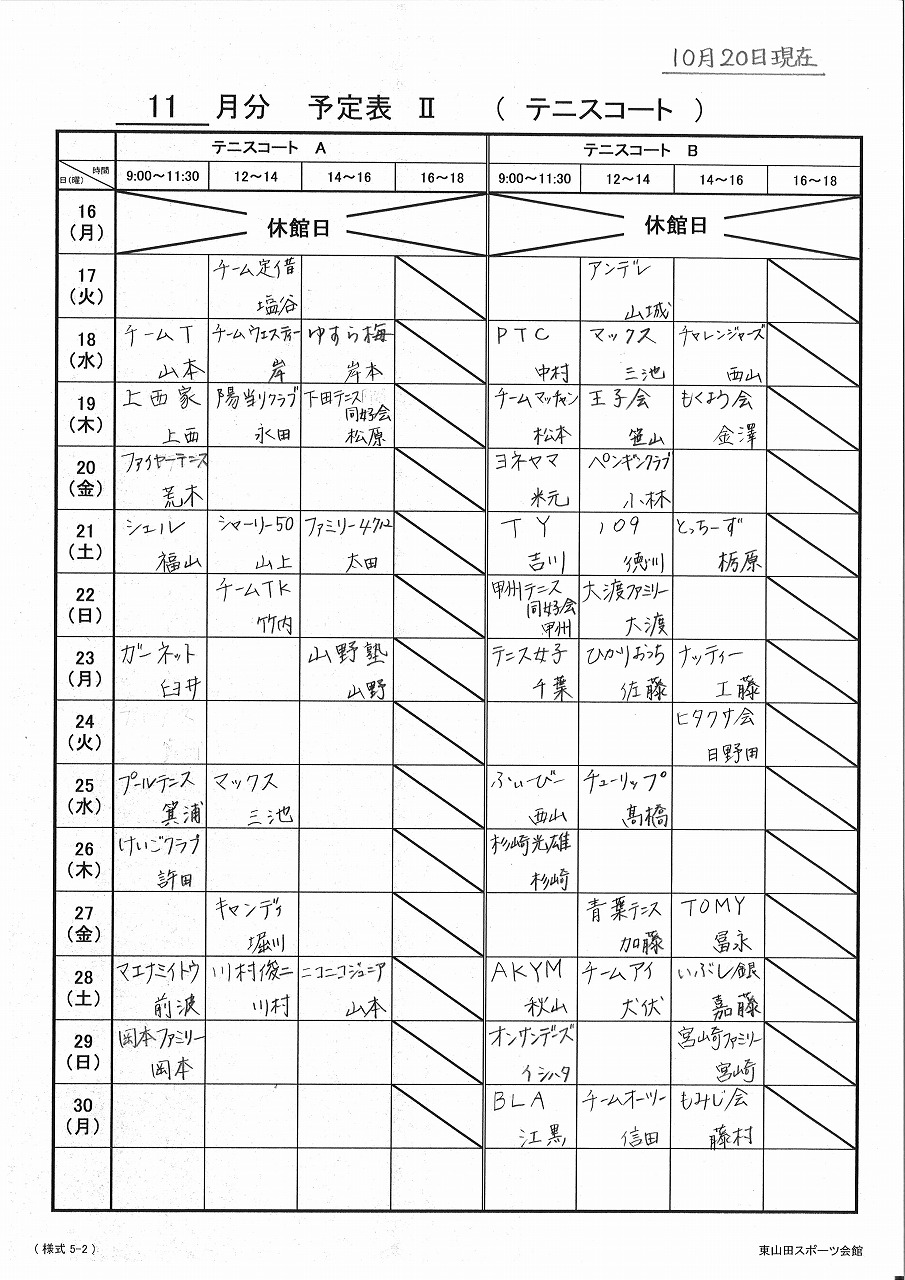 10月20日現在
11 月分 予定表 Ⅱ ( テニスコート )
テニスコート A テニスコート B
時間
日(曜) 9:00～11:30 12～14 14～16 16～18 9:00～11:30 12～14 14～16 16～18
16
(月) 休館日 休館日
17 チーム定借 アンデレ
(火) 塩谷 山城
18 チームT チームウェスティー ゆすら梅 PTC マックス チャレンジャーズ
(水) 山本 岸 岸本 中村 三池 西山
19 上西家 陽当りクラブ 下田テニス同好会 チームマッチャン 王子会 もくよう会
(木) 上西 永田 松原 松本 笹山 金澤
20 ファイヤーテニス ヨネヤマ ペンギンクラブ
(金) 荒木 米元 小林
21 シェル シャーリー50 ファミリー47.2 TY 109 とっちーず
(土) 福山 山上 太田 吉川 徳川 栃原
22 チームTK 甲州テニス同好会 大渡ファミリー
(日) 竹内 甲州 大渡
23 ガーネット 山野塾 テニス女子 ひかりおっち ナッティー
(月) 臼井 山野 千葉 佐藤 工藤
24 ヒタクサ会
(火) 日野田
25 プールテニス マックス ふぃーびー チューリップ
(水) 箕浦 三池 西山 髙橋
26 けいごクラブ 杉崎光雄
(木) 許田 杉崎
27 キャンディ 青葉テニス TOMY
(金) 堀川 加藤 冨永
28 マエナミイトウ 川村俊二 ニコニコジュニア AKYM チームアイ いぶし銀
(土) 前波 川村 山本 秋山 犬伏 嘉藤
29 岡本ファミリー オンサンデーズ 宮崎ファミリー
(日) 岡本 イシハタ 宮崎
30 BLA チームオーツー もみじ会
(月) 江黒 信田 藤村
(様式 5-2) 東山田スポーツ会館